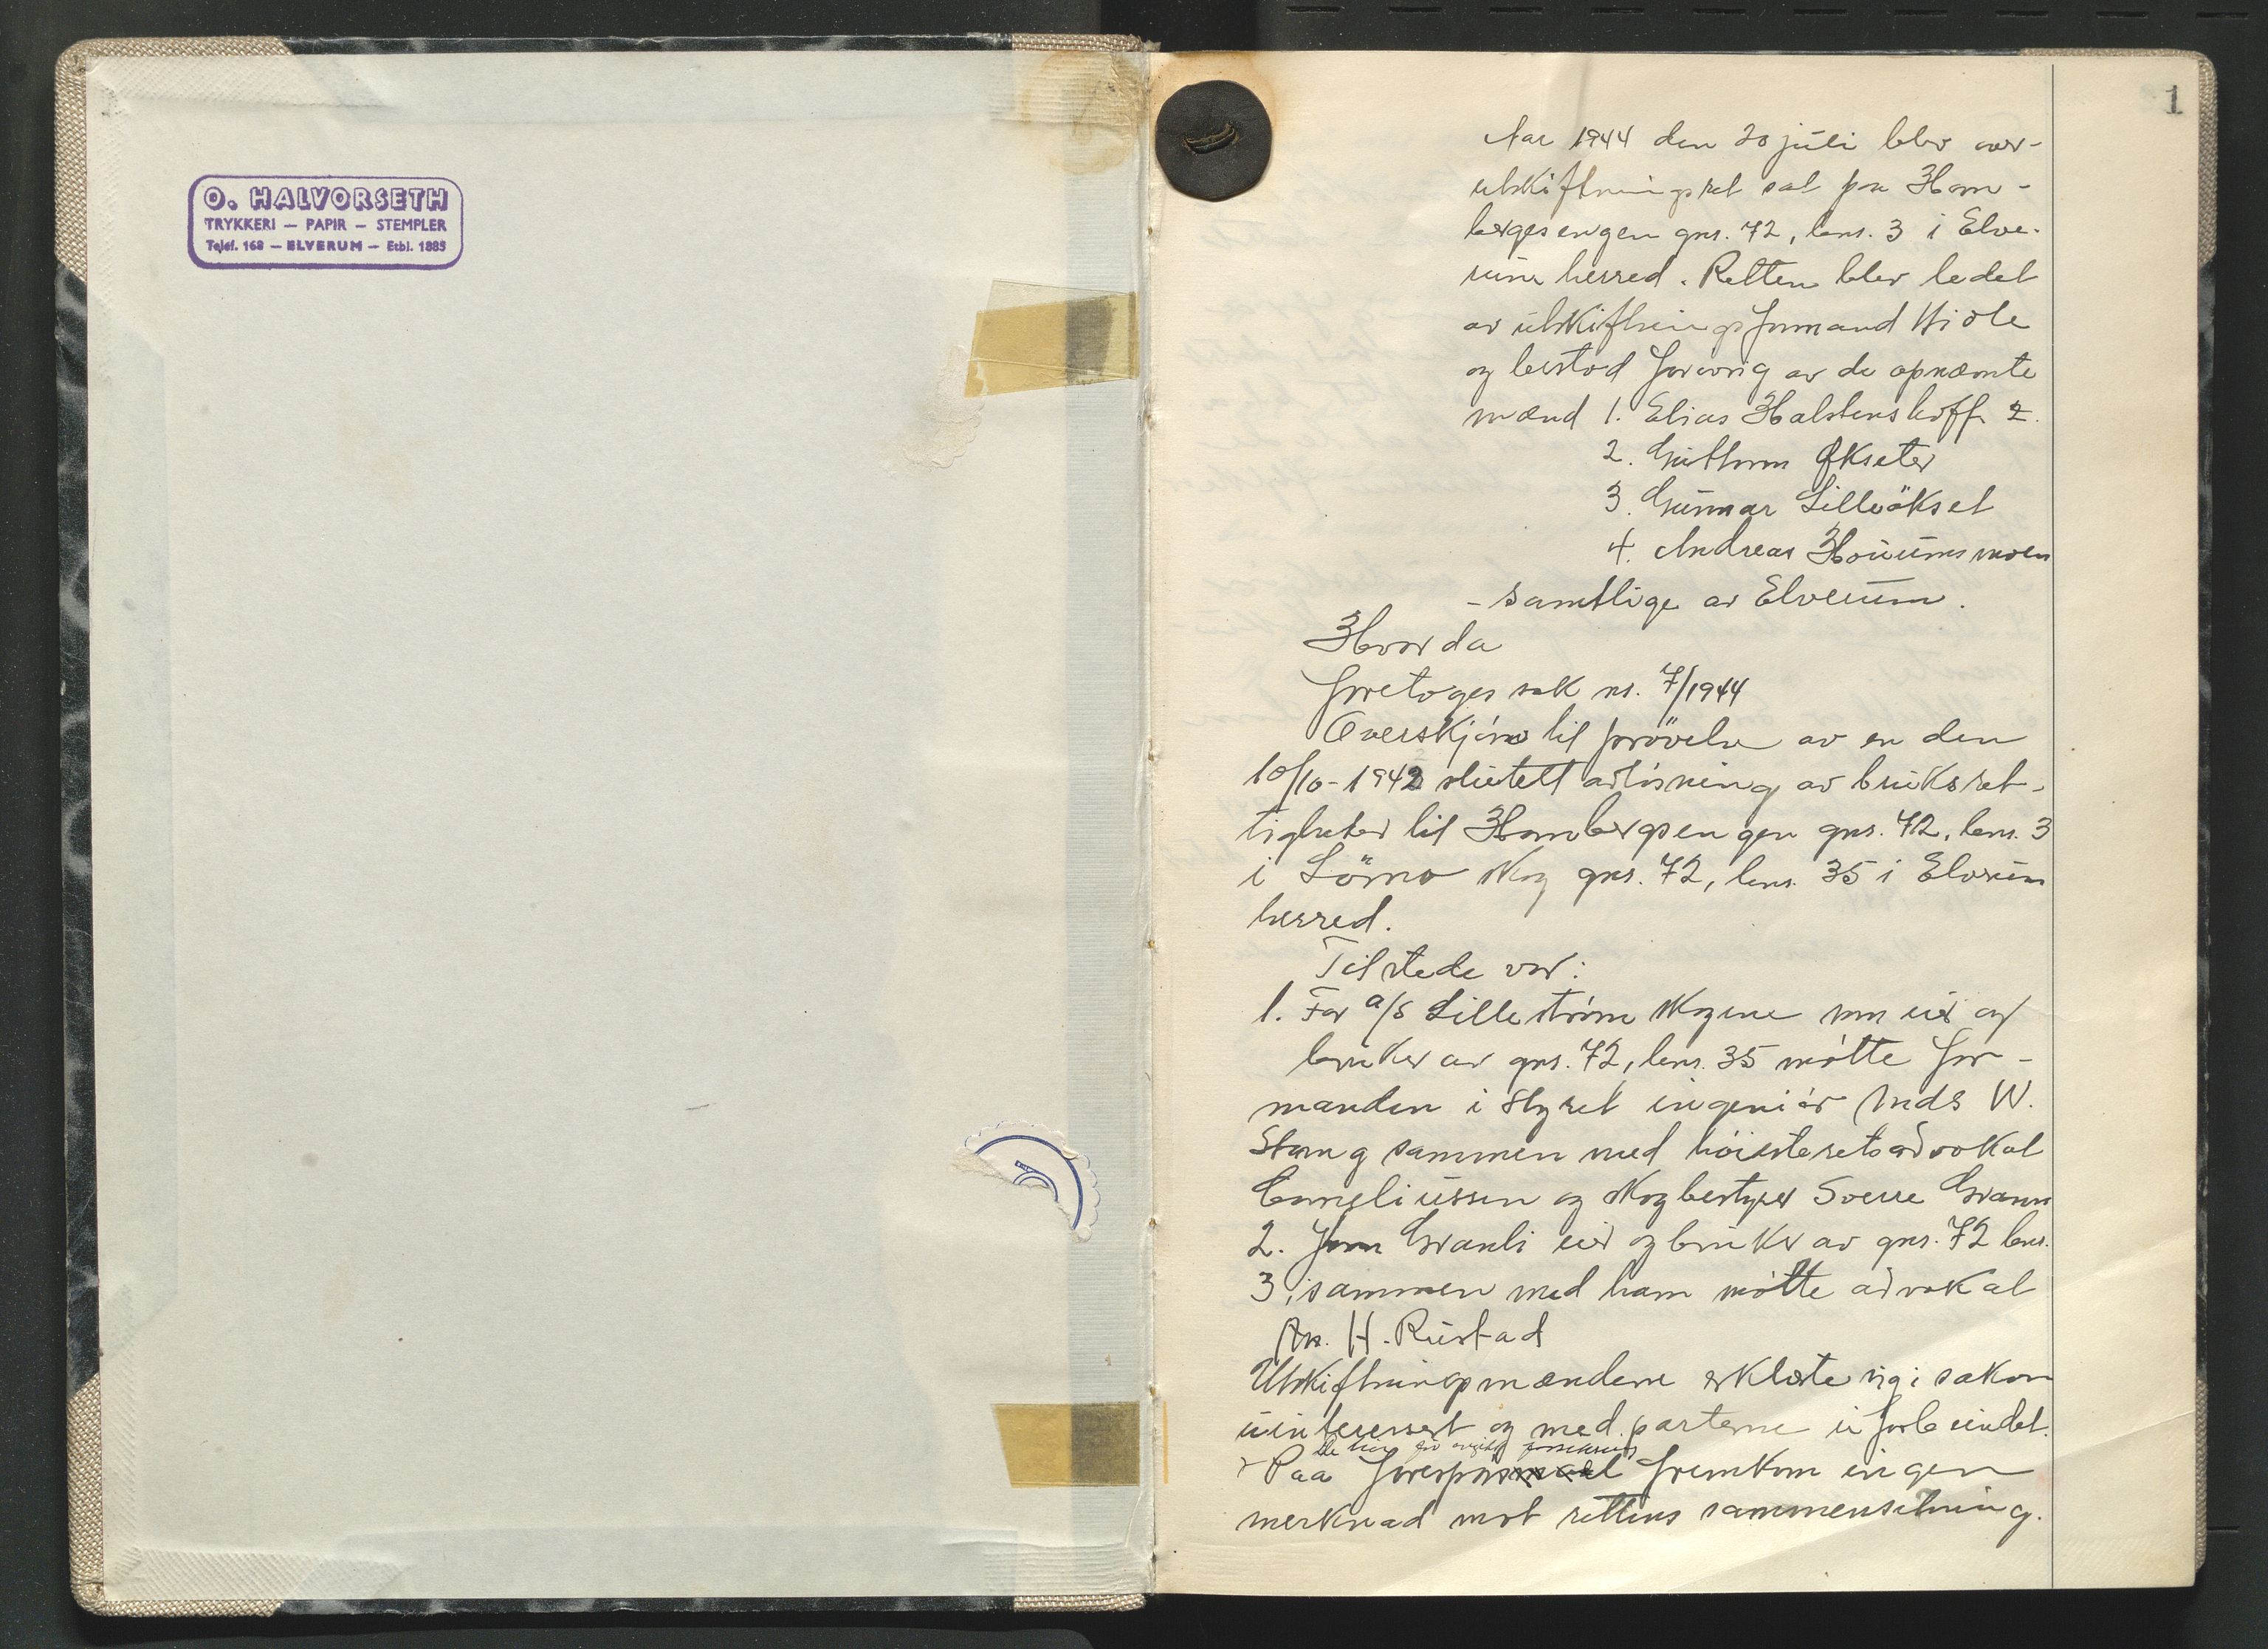 O. HALVORSETH
TRYKKERI — PAPIR — STEMPLER
Telef. 168 — ELVERUM — Etbl. 1885
1
Aar 1944 den 20 juli blev over-
utskiftningsret sat paa Ham-
bergsengen gnr. 72, bnr. 3 i Elve-
rum herred. Retten blev ledet
av utskiftningsformand Hiole
og bestod forøvrig av de opnæmte
mænd 1. Elias Halstenshoff
2. Guthorm Økseter
3. Gunnar Lilleökset
4. Andreas Hovumsmoen
- samtlige av Elverum.
Hvorda
foretoges sak nr. 7/1944
Overskjøn til prövelse av en den
10/10-1942 sluttett avløsning av bruksret-
tigheter til Hambergsengen gnr. 72, bnr. 3
i Lörno skog gnr. 72, bnr. 35 i Elverum
herred.
Tilstede var:
1. For a/s Lillestrøm skogene som eier og
bruker av gnr. 72, bnr. 35 møtte for-
manden i styret ingeniør Mads W.
Stang sammen med høiesteretsadvokat
Corneliussen og skogbestyrer Sverre Grann
2. Jon Granli eier og bruker av gnr. 72 bnr.
3, sammen med ham møtte advokat
H. Rustad
Utskiftningsmændene erklærte sig i saken
uinteressert og med parterne u forbundet.
De har før avgitt forsikring
Paa forespørsel fremkom ingen
merknad mot rettens sammensetning.